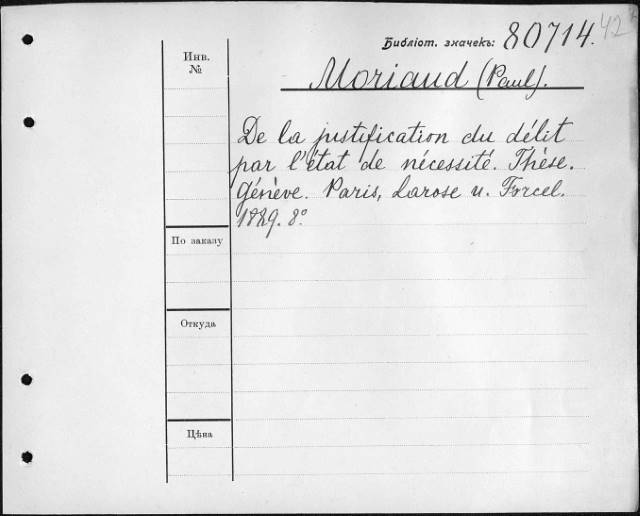 Библіот. значекъ: 80714. 42
Инв. №
Moriaud (Paul).
De la justification du délit
par l'état de nécessité. Thèse.
Génève. Paris, Larose u. Forcel.
1889. 8°.
По заказу
Откуда
Цѣна